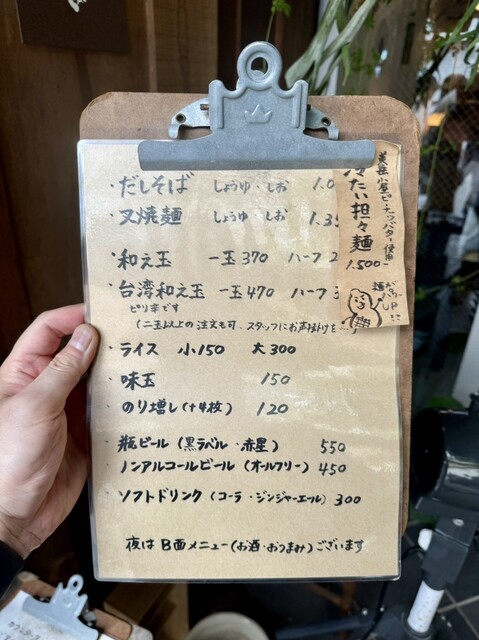 ・だしそば しょうゆ・しお 1.0
・叉焼麺 しょうゆ・しお 1.35
・和え玉 一玉370 ハーフ2
・台湾和え玉 一玉470 ハーフ3
ピリ辛です
(二玉以上の注文も可、スタッフにお声掛けを
・ライス 小150 大300
・味玉 150
・のり増し(+4枚) 120
・瓶ビール(黒ラベル・赤星) 550
・ノンアルコールビール(オールフリー) 450
・ソフトドリンク(コーラ・ジンジャーエール) 300
夜はB面メニュー(お酒・おつまみ)ございます
小屋ピーナッツバター使用
冷たい担々麺
1.500-
麺が
UP
に